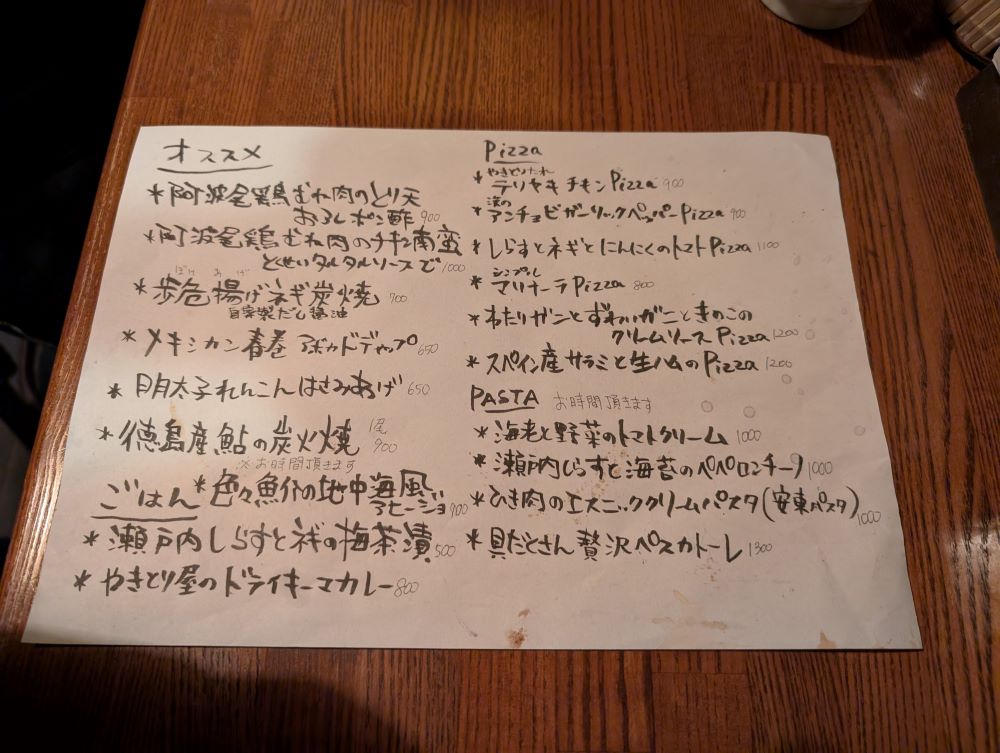 オススメ
*阿波尾鶏むね肉のとり天
おろしポン酢 900
*阿波尾鶏むね肉のチキン南蛮
とくせいタルタルソースで 1000
ぼけ あげ
*歩危揚げネギ炭焼 700
自家製だし醤油
*メキシカン春巻 アボカドディップ 650
*明太子れんこんはさみあげ 650
*徳島産鮎の炭火焼 1尾 900
※お時間頂きます
*色々魚介の地中海風
アヒージョ 900
ごはん
*瀬戸内しらすとネギの梅茶漬 500
*やきとり屋のドライキーマカレー 800
Pizza
やきとりたれ
*テリヤキチキンPizza 900
*アンチョビガーリックペッパーPizza 900
*しらすとネギとにんにくのトマトPizza 1100
シンプル
*マリナーラPizza 800
*わたりガニとずわいガニときのこの
クリームソースPizza 1200
*スペイン産サラミと生ハムのPizza 1200
PASTA お時間頂きます
*海老と野菜のトマトクリーム 1000
*瀬戸内しらすと海苔のペペロンチーノ 1000
*ひき肉のエスニッククリームパスタ(安東パスタ) 1000
*具だくさん贅沢ペスカトーレ 1300